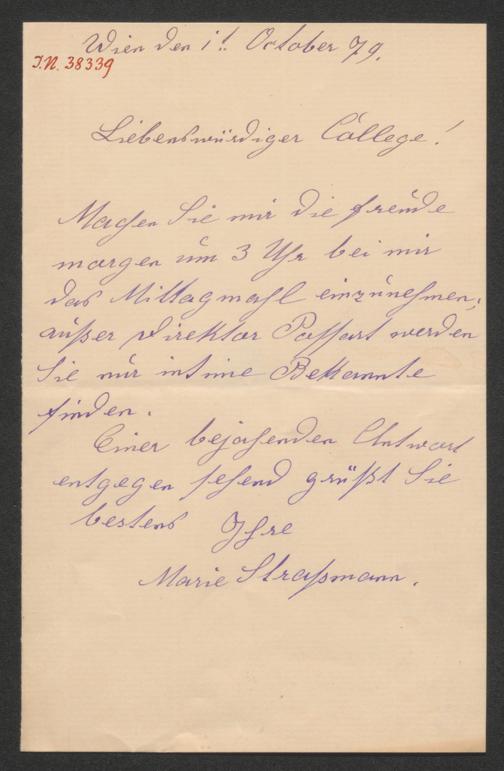 Wien den 1t. October 79.
J.N. 38339
Liebenswürdiger College!
Machen Sie mir die Freude
morgen um 3 Uhr bei mir
das Mittagmahl einzunehmen;
außer Direktor Possart werden
Sie nur intime Bekannte
finden.
Einer bejahenden Antwort
entgegen sehend grüßt Sie
bestens Ihre
Marie Straßmann.